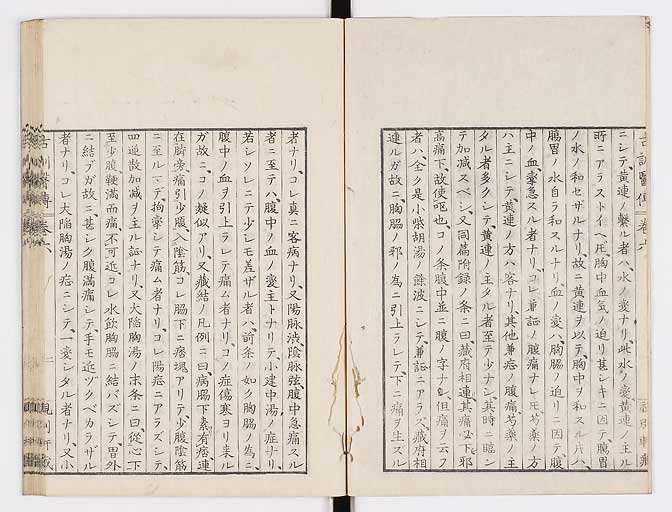 ニシテ、黄連ノ繋ル者ハ、水ノ変ナリ、此水ノ変黄連ノ主ル
所ニアラストイヘ𪜈、胸中血気ノ迫リ甚シキニ因テ、腸胃
ノ水ノ和セザルナリ、故ニ黄連ヲ以テ、胸中ヲ和スル片ハ、
腸胃ノ水自ラ和スルナリ、血ノ変ハ、胸脇ノ迫リニ因テ、腹
中ノ血攣急スル者ナリ、コレ兼証ノ腹痛ナレ𪜈、芍薬ノ方
ハ主ニシテ、黄連ノ方ハ客ナリ、其他兼症ノ腹痛、芍薬ノ主
タル者多クシテ、黄連ノ主タル者至テ少ナシ、其時ニ臨シ
テ加減スベシ、又同篇附録ノ条ニ曰、蔵府相連、其痛必下、邪
高痛下、故使嘔也、コノ条腹中並ニ腹ノ字ナク、但痛ヲ云フ
者ハ、全ク是小柴胡湯ノ餘波ニシテ、兼証ニアラズ、蔵府相
連ルガ故ニ、胸脇ノ邪ノ為ニ引上ラレテ、下ニ痛ヲ生スル
者ナリ、コレ真ニ客病ナリ、又陽脉渋、陰脉弦、腹中急痛スル
者ニ至テハ、腹中ノ血ノ変主トナリテ、小建中湯ノ症ナリ、
若シソレニテ少シモ差ザル者ハ、前条ノ如ク胸脇ノ為ニ、
腹中ノ血ヲ引上ラレテ痛ム者ナリ、コノ症傷寒ヨリ来ル
ガ故ニ、コノ疑似アリ、又蔵結ノ凡例ニ曰、病脇下素有痞連
在臍旁、痛引少腹、入陰筋、コレ脇下ニ痞塊アリテ、少腹陰筋
ニ至ルマデ、拘攣シテ痛ム者ナリ、コレ陽症ニアラズシテ、
四逆散加減ヲ主ル証ナリ、又大陥胸湯ノ本条ニ曰、従心下
至少腹鞕満而痛、不可近、コレ水飲胸脇ニ結バズシテ、胃外
ニ結ブガ故ニ、甚シク腹満痛シテ、手モ近ヅクベカラザル
者ナリ、コレ大陥胸湯ノ症ニシテ、一変シタル者ナリ、又小